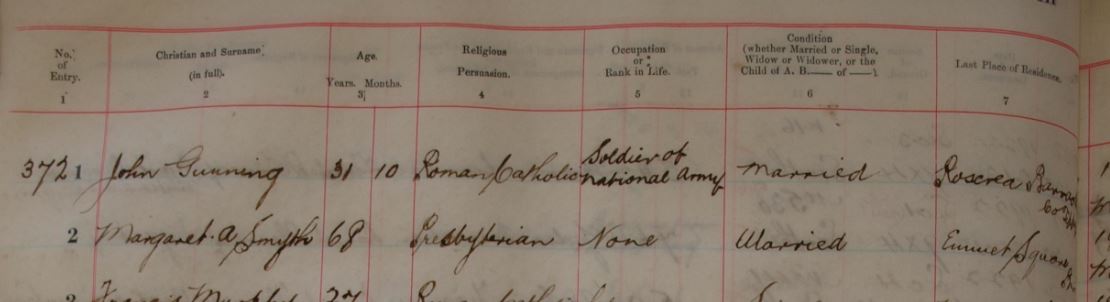 No. of Entry. Christian and Surname (in full). Age. Years. Months. Religious Persuasion. Occupation or Rank in Life. Condition (whether Married or Single, Widow or Widower, or the Child of A. B—— of ——). Last Place of Residence.
1 2 3 4 5 6 7
3721 John Gunning 31 10 Roman Catholic Soldier of national Army married Roscrea
2 Margaret. A Smyth 68 Presbyterian None Married Emmet Square
3 Francis 27 Roman